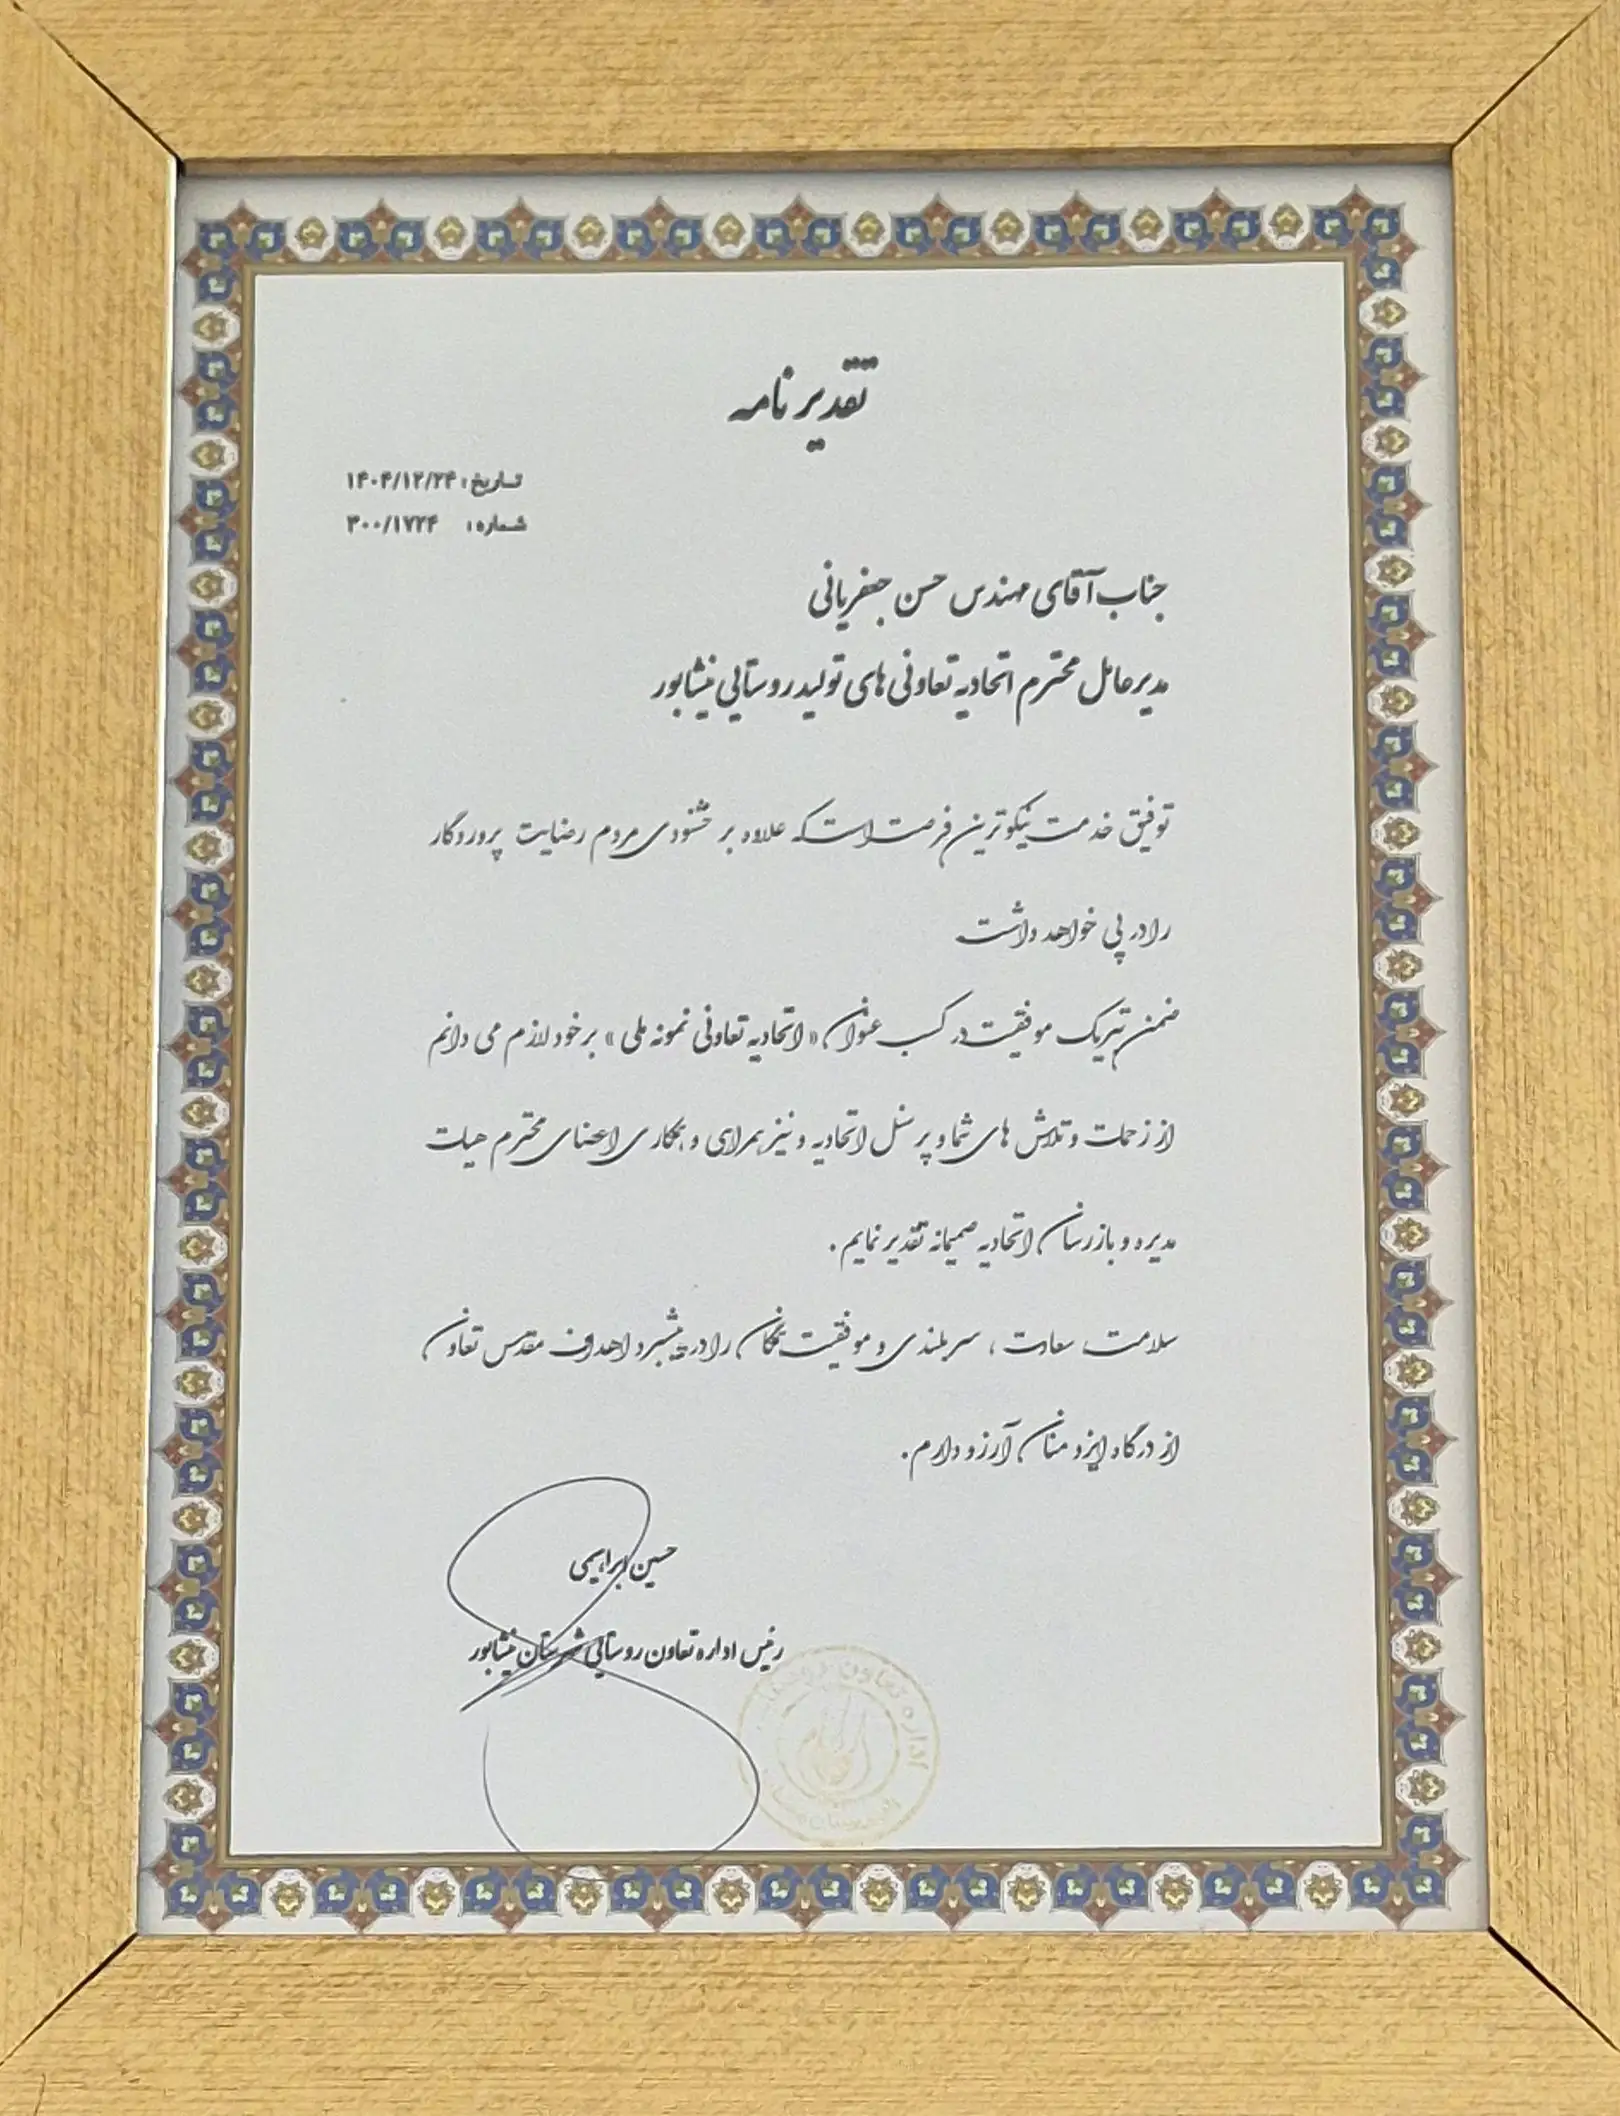 تقدیر نامه
تاریخ: ۱۴۰۴/۱۲/۲۴
شماره: ۳۰۰/۱۷۲۴
جناب آقای مهندس حسن جعفریانی
مدیرعامل محترم اتحادیه تعاونی های تولید روستایی نیشابور
توفیق خدمت نیکوترین فرصت است که علاوه بر خشنودی مردم رضایت پروردگار
را در پی خواهد داشت
ضمن تبریک موفقیت در کسب عنوان «اتحادیه تعاونی نمونه ملی» بر خود لازم می دانم
از زحمات و تلاش های شما و پرسنل اتحادیه و نیز همراهی و همکاری اعضای محترم هیات
مدیره و بازرسان اتحادیه صمیمانه تقدیر نمایم.
سلامت، سعادت، سربلندی و موفقیت همگان را در پیشبرد اهداف مقدس تعاون
از درگاه ایزد منان آرزو دارم.
حسین ابراهیمی
رئیس اداره تعاون روستایی شهرستان نیشابور
اداره تعاون روستایی